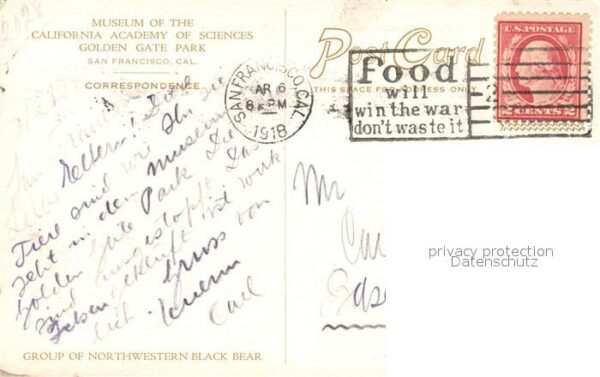 MUSEUM OF THE
CALIFORNIA ACADEMY OF SCIENCES
GOLDEN GATE PARK
SAN FRANCISCO, CAL.
CORRESPONDENCE
Post Card
THIS SPACE FOR ADDRESS ONLY
SAN FRANCISCO, CAL.
6
8 PM
1918
Food
will
win the war
don't waste it
U.S. POSTAGE
2 CENTS 2
Eltern!
Tiere sind wie Ihr sie
seht in dem Museum
Golden Gate Park Die
sind ausgestopft Das
ist
Gruss von
Euerm
Carl
Mr
privacy protection
Datenschutz
GROUP OF NORTHWESTERN BLACK BEAR